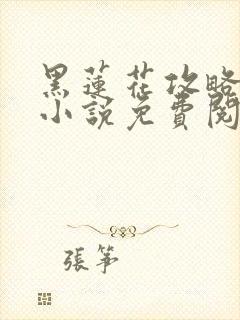 黑蓮花攻略
小說免費閱
張筝